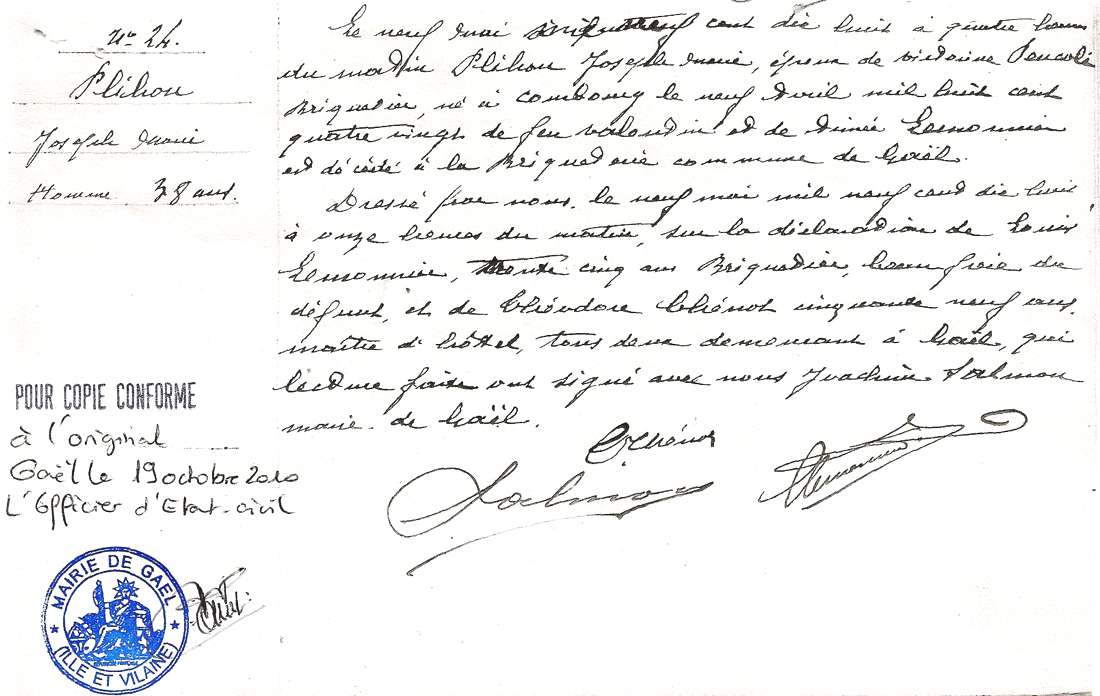 N° 24.
Plihon
Joseph Marie
Homme 38 ans.
Le neuf mai mil neuf cent dix huit à quatre heures
du matin Plihon Joseph Marie, époux de Victorine
Briquetier, né à Combourg le neuf Avril mil huit cent
quatre vingt de feu Valentin et de Aimée Lemonnier
est décédé à la Briqueterie commune de Gaël.
Dressé par nous. le neuf mai mil neuf cent dix huit
à onze heures du matin, sur la déclaration de Louis
Lemonnier, trente cinq ans Briquetier, beau frère du
défunt, et de Théodore Chénot cinquante neuf ans.
maître d'hôtel, tous deux demeurant à Gaël, qui
lecture faite ont signé avec nous Joachim Salmon
maire de Gaël.
POUR COPIE CONFORME
à l'original
Gaël le 19 octobre 2010
L'Officier d'Etat-civil
T. Chénot
Salmon
Lemonnier
MAIRIE DE GAEL
(ILLE ET VILAINE)